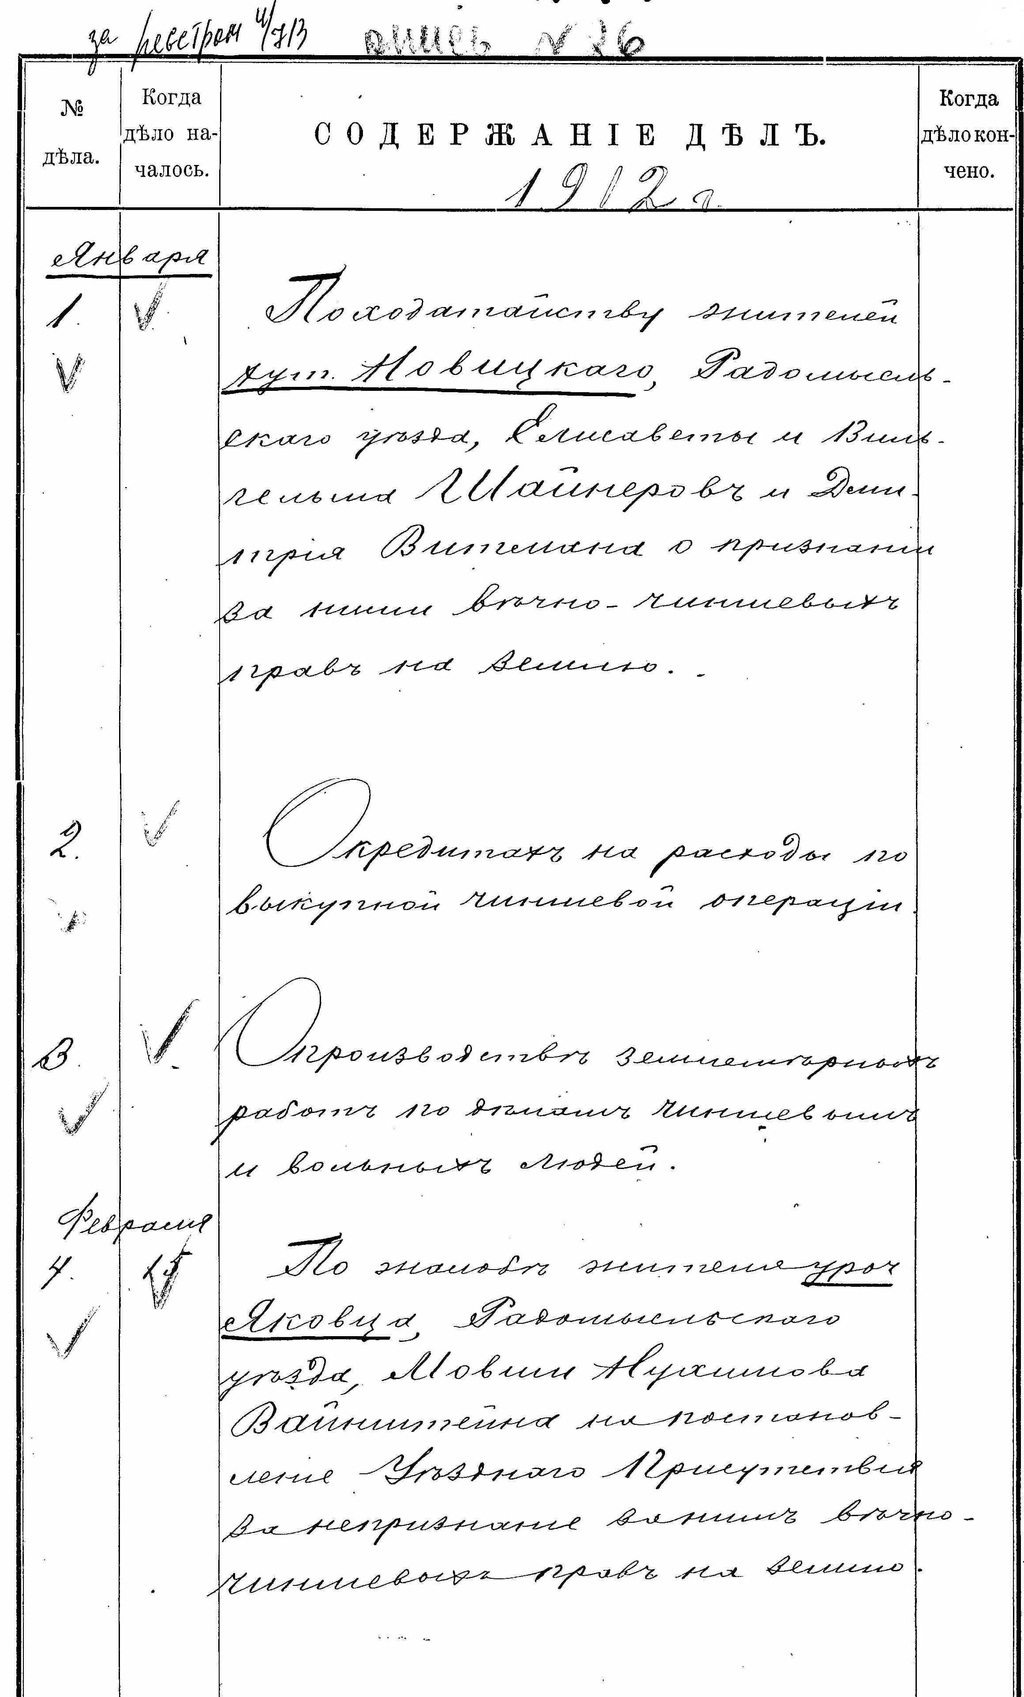 за реестром 4/713 опись N 26
№ дѣла.
Когда дѣло на-
чалось.
СОДЕРЖАНІЕ ДѢЛЪ.
Когда дѣло кон-
чено.
1912 г.
Января
1.
По ходатайству жителей
хут. Новицкаго, Радомысль-
скаго уѣзда, Елисаветы и Виль-
гельма Шайнеровъ и Дми-
трія Витемана о признании
за ними вѣчно-чиншевыхъ
правъ на землю.
2.
О кредитахъ на расходы по
выкупной чиншевой операціи.
3.
О производствѣ землемѣрныхъ
работъ по дѣламъ чиншевымъ
и вольныхъ людей.
Февраля
4. 15
По жалобѣ жителя уроч
Яковца, Радомысльскаго
уѣзда, Мовши Нухимова
Вайнштейна на постанов-
леніе Уѣзднаго Присутствія
за непризнаніе за нимъ вѣчно-
чиншевыхъ правъ на землю.